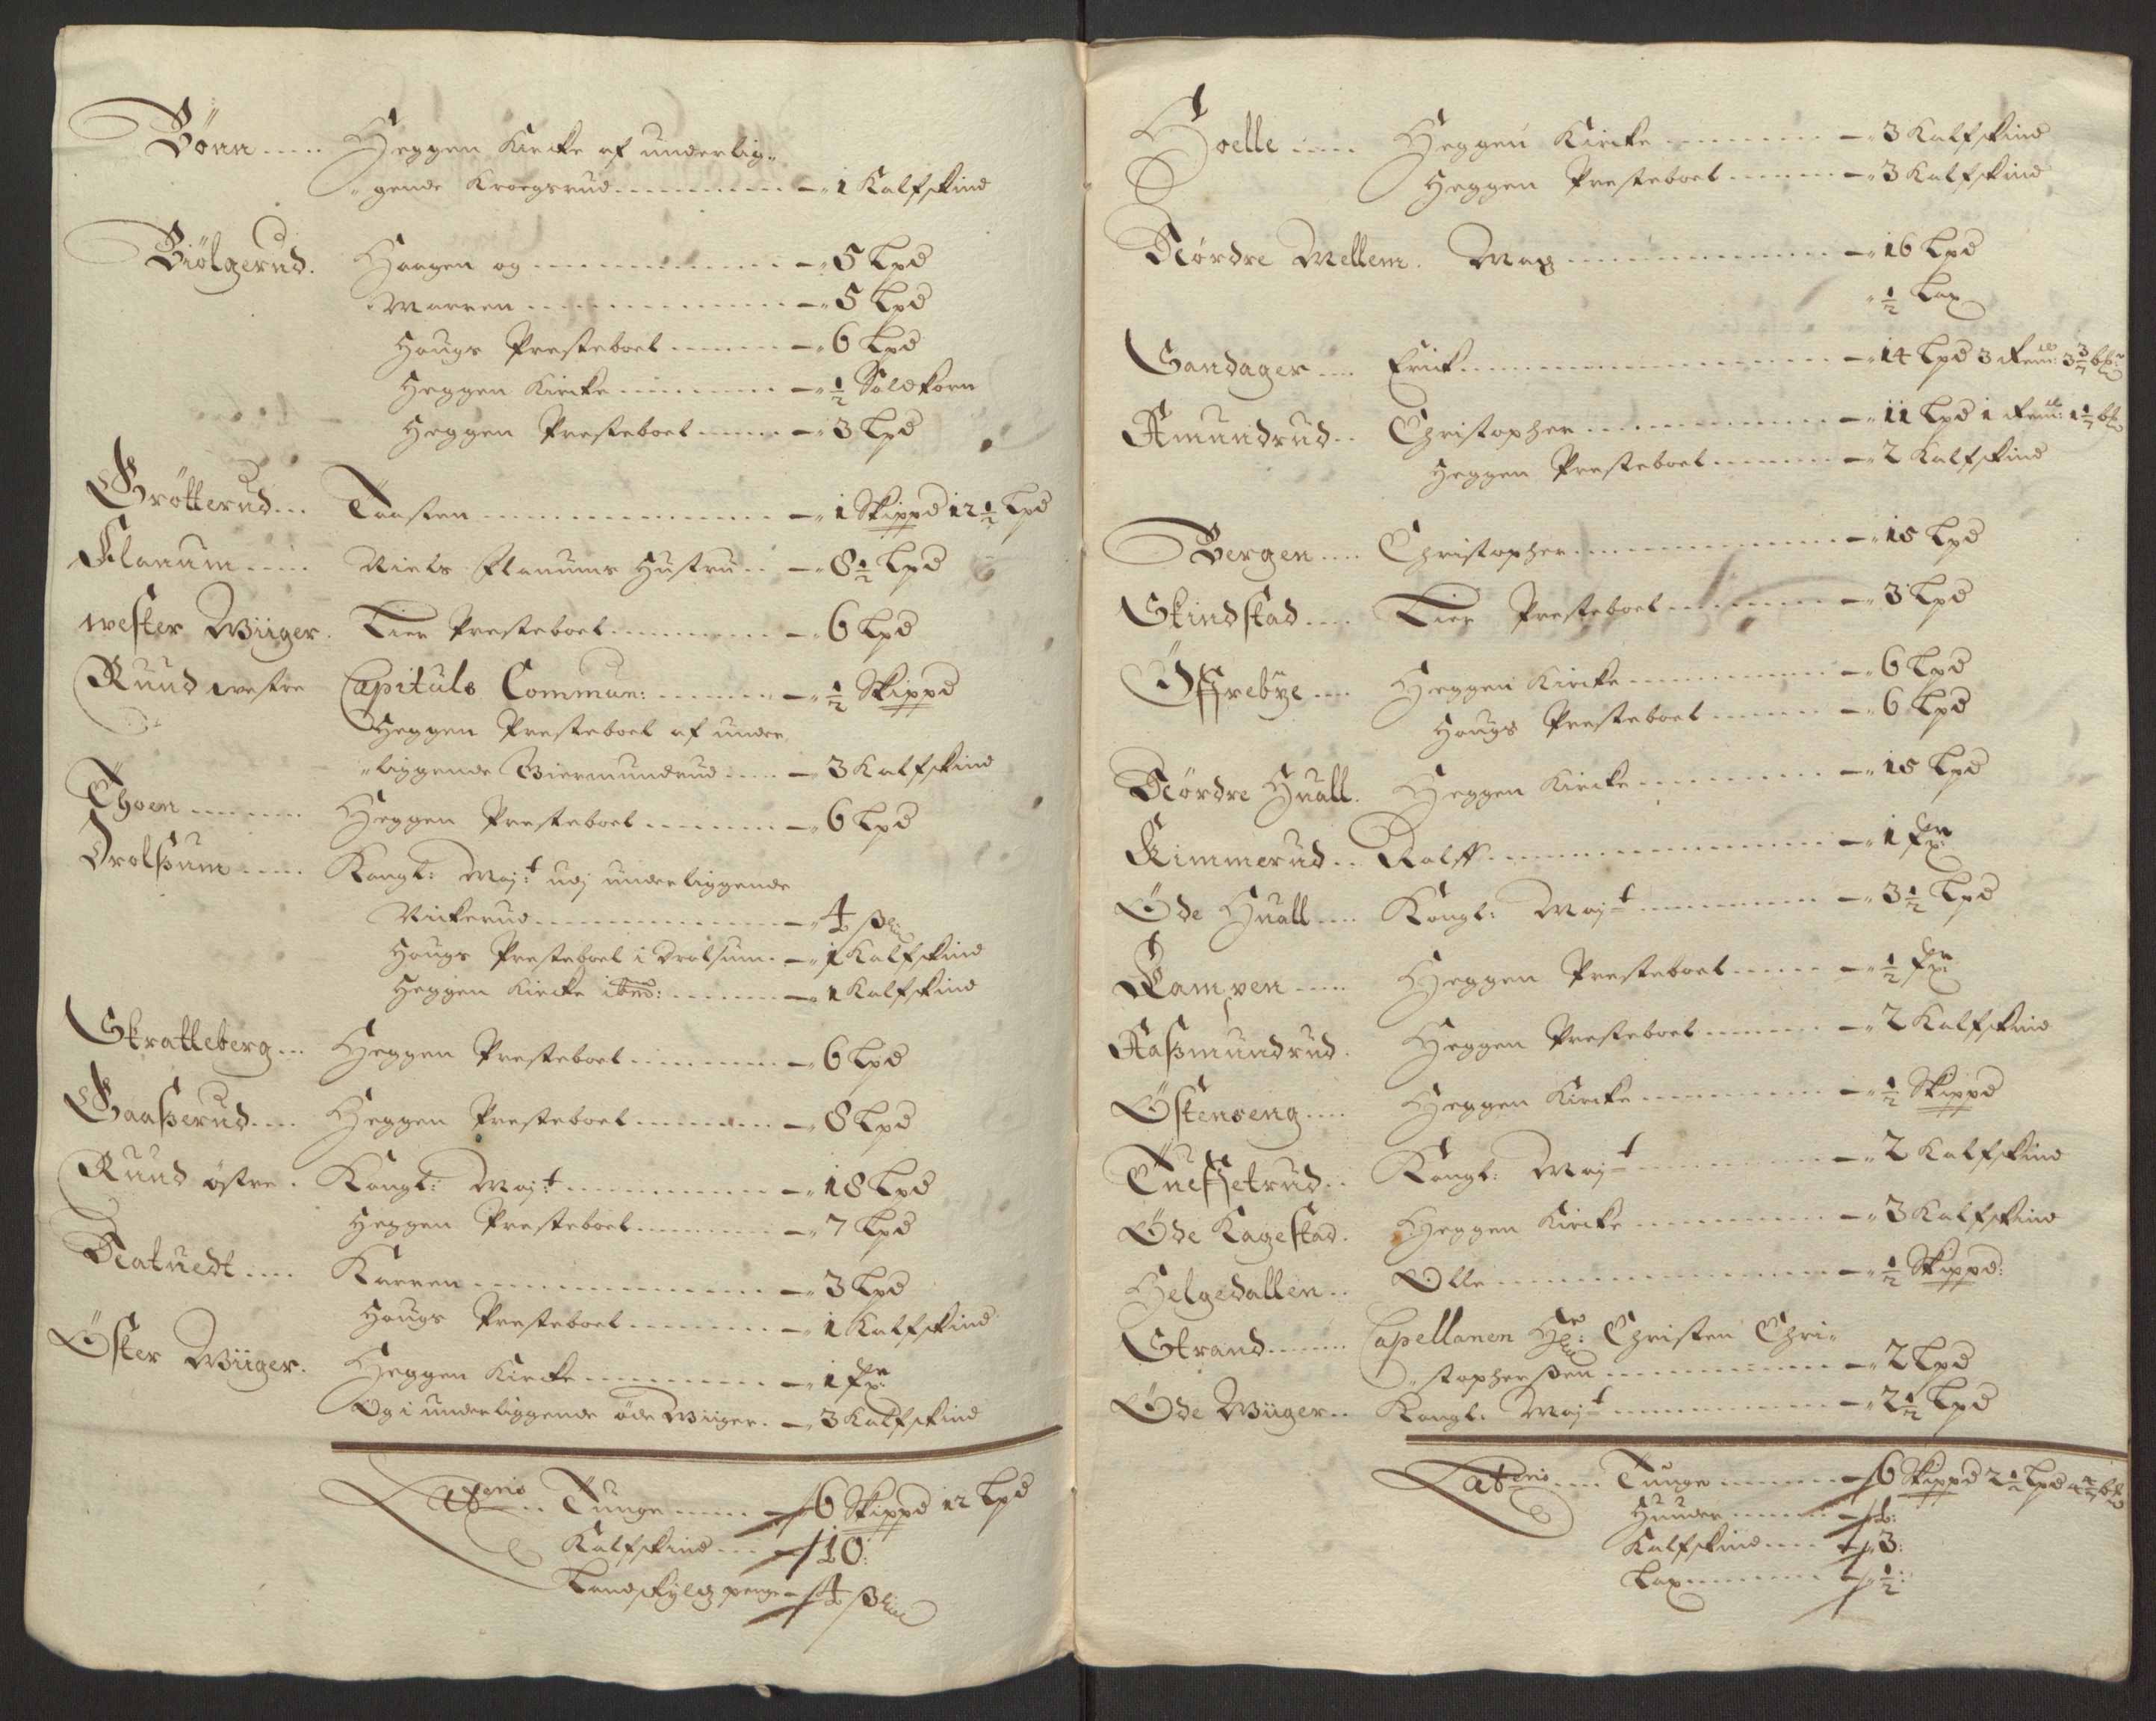 Bönn ..... Heggen Kircke af underlig„
„gende Kroegsrud ......... — „ 1 Kalfskind
Biölgerud. Haagen og ............ — „ 5 Lpd
Marren ............ — „ 5 Lpd
Hougs Presteboel ....... — „ 6 Lpd
Heggen Kircke ........ — „ ½ Soldkorn
Heggen Presteboel ..... — „ 3 Lpd
Gröterud ... Taasten ............... — „ 1 Skippd 12½ Lpd
Flanum ..... Niels Flanums Hustru .. — „ 8½ Lpd
wester Wiiger. Lier Presteboel ......... — „ 6 Lpd
Ruud westre Capituls Commun: ....... — „ ½ Skippd
Heggen Presteboel af under
„liggende Biermundrud ..... — 3 Kalfskind
Thoen ....... Heggen Presteboel ....... — „ 6 Lpd
Drolsum ..... Kongl: Maj:t udj underliggende
Vickerud .............. — „ 4 ß
Hougs Presteboel i Drolsum. — „ 1 Kalfskind
Heggen Kircke ibid: ....... — „ 1 Kalfskind
Skratteberg ... Heggen Presteboel ........ — „ 6 Lpd
Gaaßerud .... Heggen Presteboel ........ — „ 8 Lpd
Ruud östre . Kongl: Maj:t ........... — „ 18 Lpd
Heggen Presteboel ....... — „ 7 Lpd
Natuedt .... Karren ............... — „ 3 Lpd
Hougs Presteboel ....... — „ 1 Kalfskind
Öster Wiiger. Heggen Kircke ......... — „ 1 fr
Og i underliggende öde Wiiger. — „ 3 Kalfskind
Lateris .. Tunge ..... — 6 Skippd 12 Lpd
Kalfskind ... — 10:
Landskyld penge — 4 ß
Hoelle ..... Heggen Kircke ........ — „ 3 Kalfskind
Heggen Presteboel ...... — „ 3 Kalfskind
Nördre Mellem. Mag ............. — „ 16 Lpd
„ ½ Lax
Sandager .... Erick ................ — „ 14 Lpd 3 Rem: 3 3/7
Amundrud .. Christopher ........... — „ 11 Lpd 1 Rem:
Heggen Presteboel ...... — „ 2 Kalfskind
Bergen .... Christopher ............ — „ 15 Lpd
Skindstad .... Lier Presteboel ........ — „ 3 Lpd
Öffrebye .... Heggen Kircke .......... — „ 6 Lpd
Hougs Presteboel ...... — „ 6 Lpd
Nördre Huall. Heggen Kircke ......... — „ 15 Lpd
Kimmerud .. Rolff ................ — „ 1 fr
Öde Huall .... Kongl: Maj:t ......... — „ 3½ Lpd
Kampen ..... Heggen Presteboel ..... — „ ½ fr
Aaßmundrud . Heggen Presteboel ...... — „ 2 Kalfskind
Östenseng .... Heggen Kircke ......... — „ ½ Skippd
Tueffetrud .. Kongl: Maj:t .......... — „ 2 Kalfskind
Öde Kagestad. Heggen Kircke ......... — „ 3 Kalfskind
Helgedallen .. Olle ................ — „ ½ Skippd:
Strand ....... Capellanen Hr: Christen Chri„
„stopherßen ............ — „ 2 Lpd
Öde Wiiger .. Kongl: Maj:t ........... — „ 2½ Lpd
Lateris .... Tunge ...... — 6 Skippd 2½ Lpd
Huuder
Kalfskind .... — 13:
Lax ....... — ½: